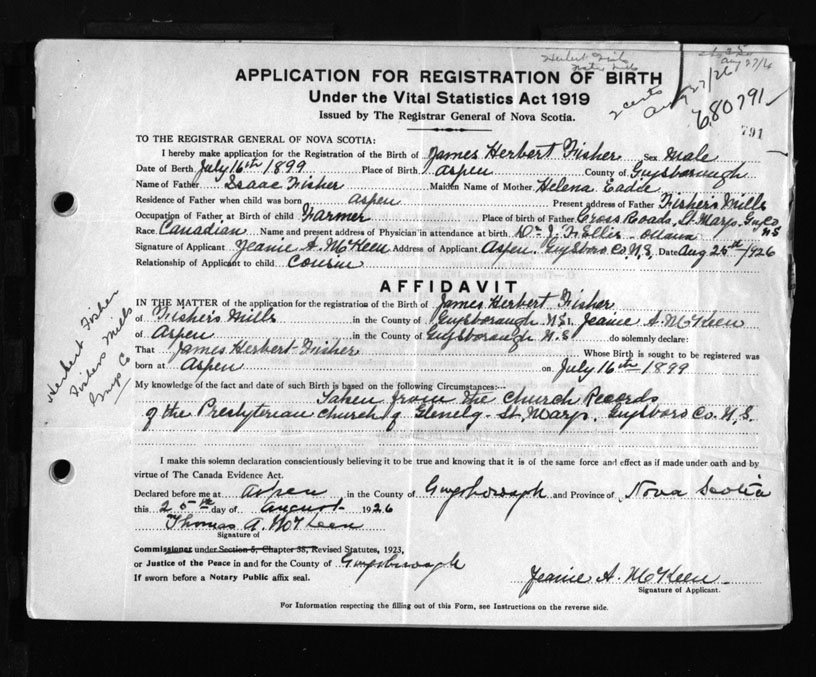 Herbert Fisher
APPLICATION FOR REGISTRATION OF BIRTH
Under the Vital Statistics Act 1919
Issued by The Registrar General of Nova Scotia.
Aug 27/26
2 certs
Aug 27/26
680791
791
TO THE REGISTRAR GENERAL OF NOVA SCOTIA:
I hereby make application for the Registration of the Birth of James Herbert Fisher Sex Male
Date of Birth July 16th 1899 Place of Birth Aspen County of Guysborough
Name of Father Isaac Fisher Maiden Name of Mother Helena
Residence of Father when child was born Aspen Present address of Father Fisher's Mills
Occupation of Father at Birth of child Farmer Place of birth of Father Cross Roads, St Marys. Guy Co NS
Race Canadian Name and present address of Physician in attendance at birth Dr J. Ellis - Ottawa
Signature of Applicant Jeanie A. McKeen Address of Applicant Aspen. Guysboro Co N.S. Date Aug 25th 1926
Relationship of Applicant to child Cousin
AFFIDAVIT
IN THE MATTER of the application for the registration of the Birth of James Herbert Fisher
of Fisher's Mills in the County of Guysborough N.S. I, Jeanie A. McKeen
of Aspen in the County of Guysborough N.S do solemnly declare:
That James Herbert Fisher Whose Birth is sought to be registered was
born at Aspen on July 16th 1899
My knowledge of the fact and date of such Birth is based on the following Circumstances:--
Taken from the Church Records
of the Presbyterian Church of Glenelg - St. Marys. Guysboro Co. N.S.
Herbert Fisher
Fishers Mills
Guys Co
I make this solemn declaration conscientiously believing it to be true and knowing that it is of the same force and effect as if made under oath and by
virtue of The Canada Evidence Act.
Declared before me at Aspen in the County of Guysborough and Province of Nova Scotia
this 25th day of August 1926
Thomas A. McKeen
Signature of
Commissioner under Section 5, Chapter 38, Revised Statutes, 1923,
or Justice of the Peace in and for the County of Guysborough
If sworn before a Notary Public affix seal.
Jeanie A. McKeen
Signature of Applicant.
For Information respecting the filling out of this Form, see Instructions on the reverse side.